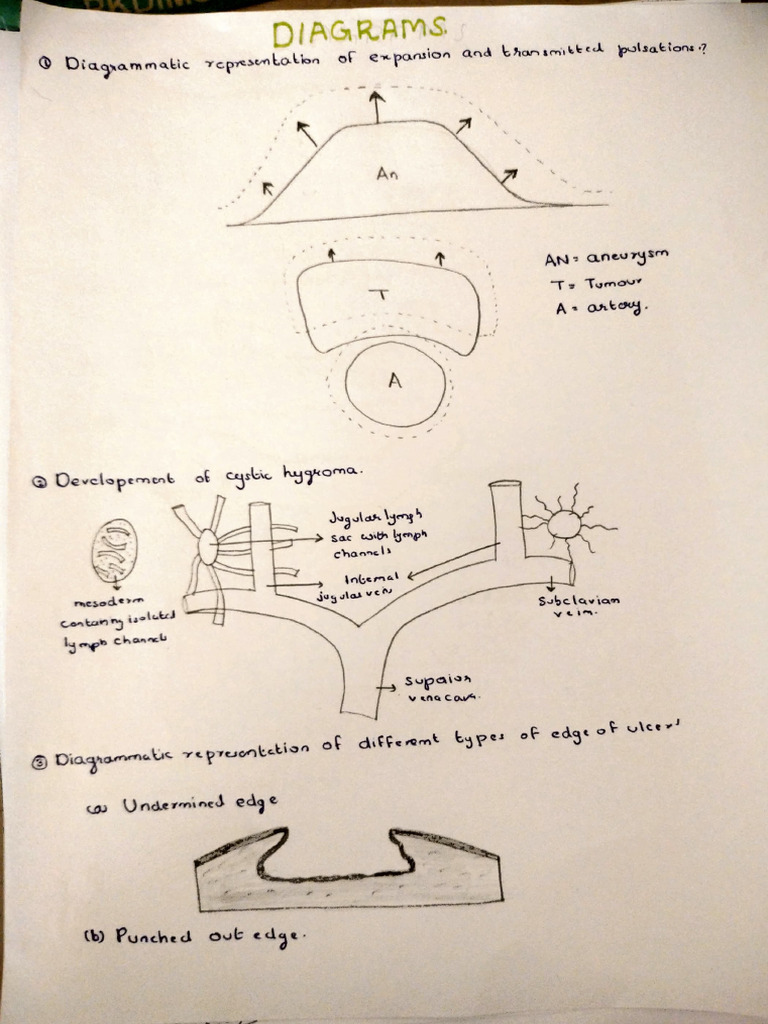 DIAGRAMS.
① Diagrammatic representation of expansion and transmitted pulsations.?
An
T
A
AN = aneurysm
T = Tumour
A = artery.
② Developement of cystic hygroma.
Jugular lymph
sac with lymph
channels
Internal
jugular vein
mesoderm
containing isolated
lymph channels
Subclavian
vein.
Supaior
venacava.
③ Diagrammatic representation of different types of edge of ulcers
(a) Undermined edge
(b) Punched out edge.